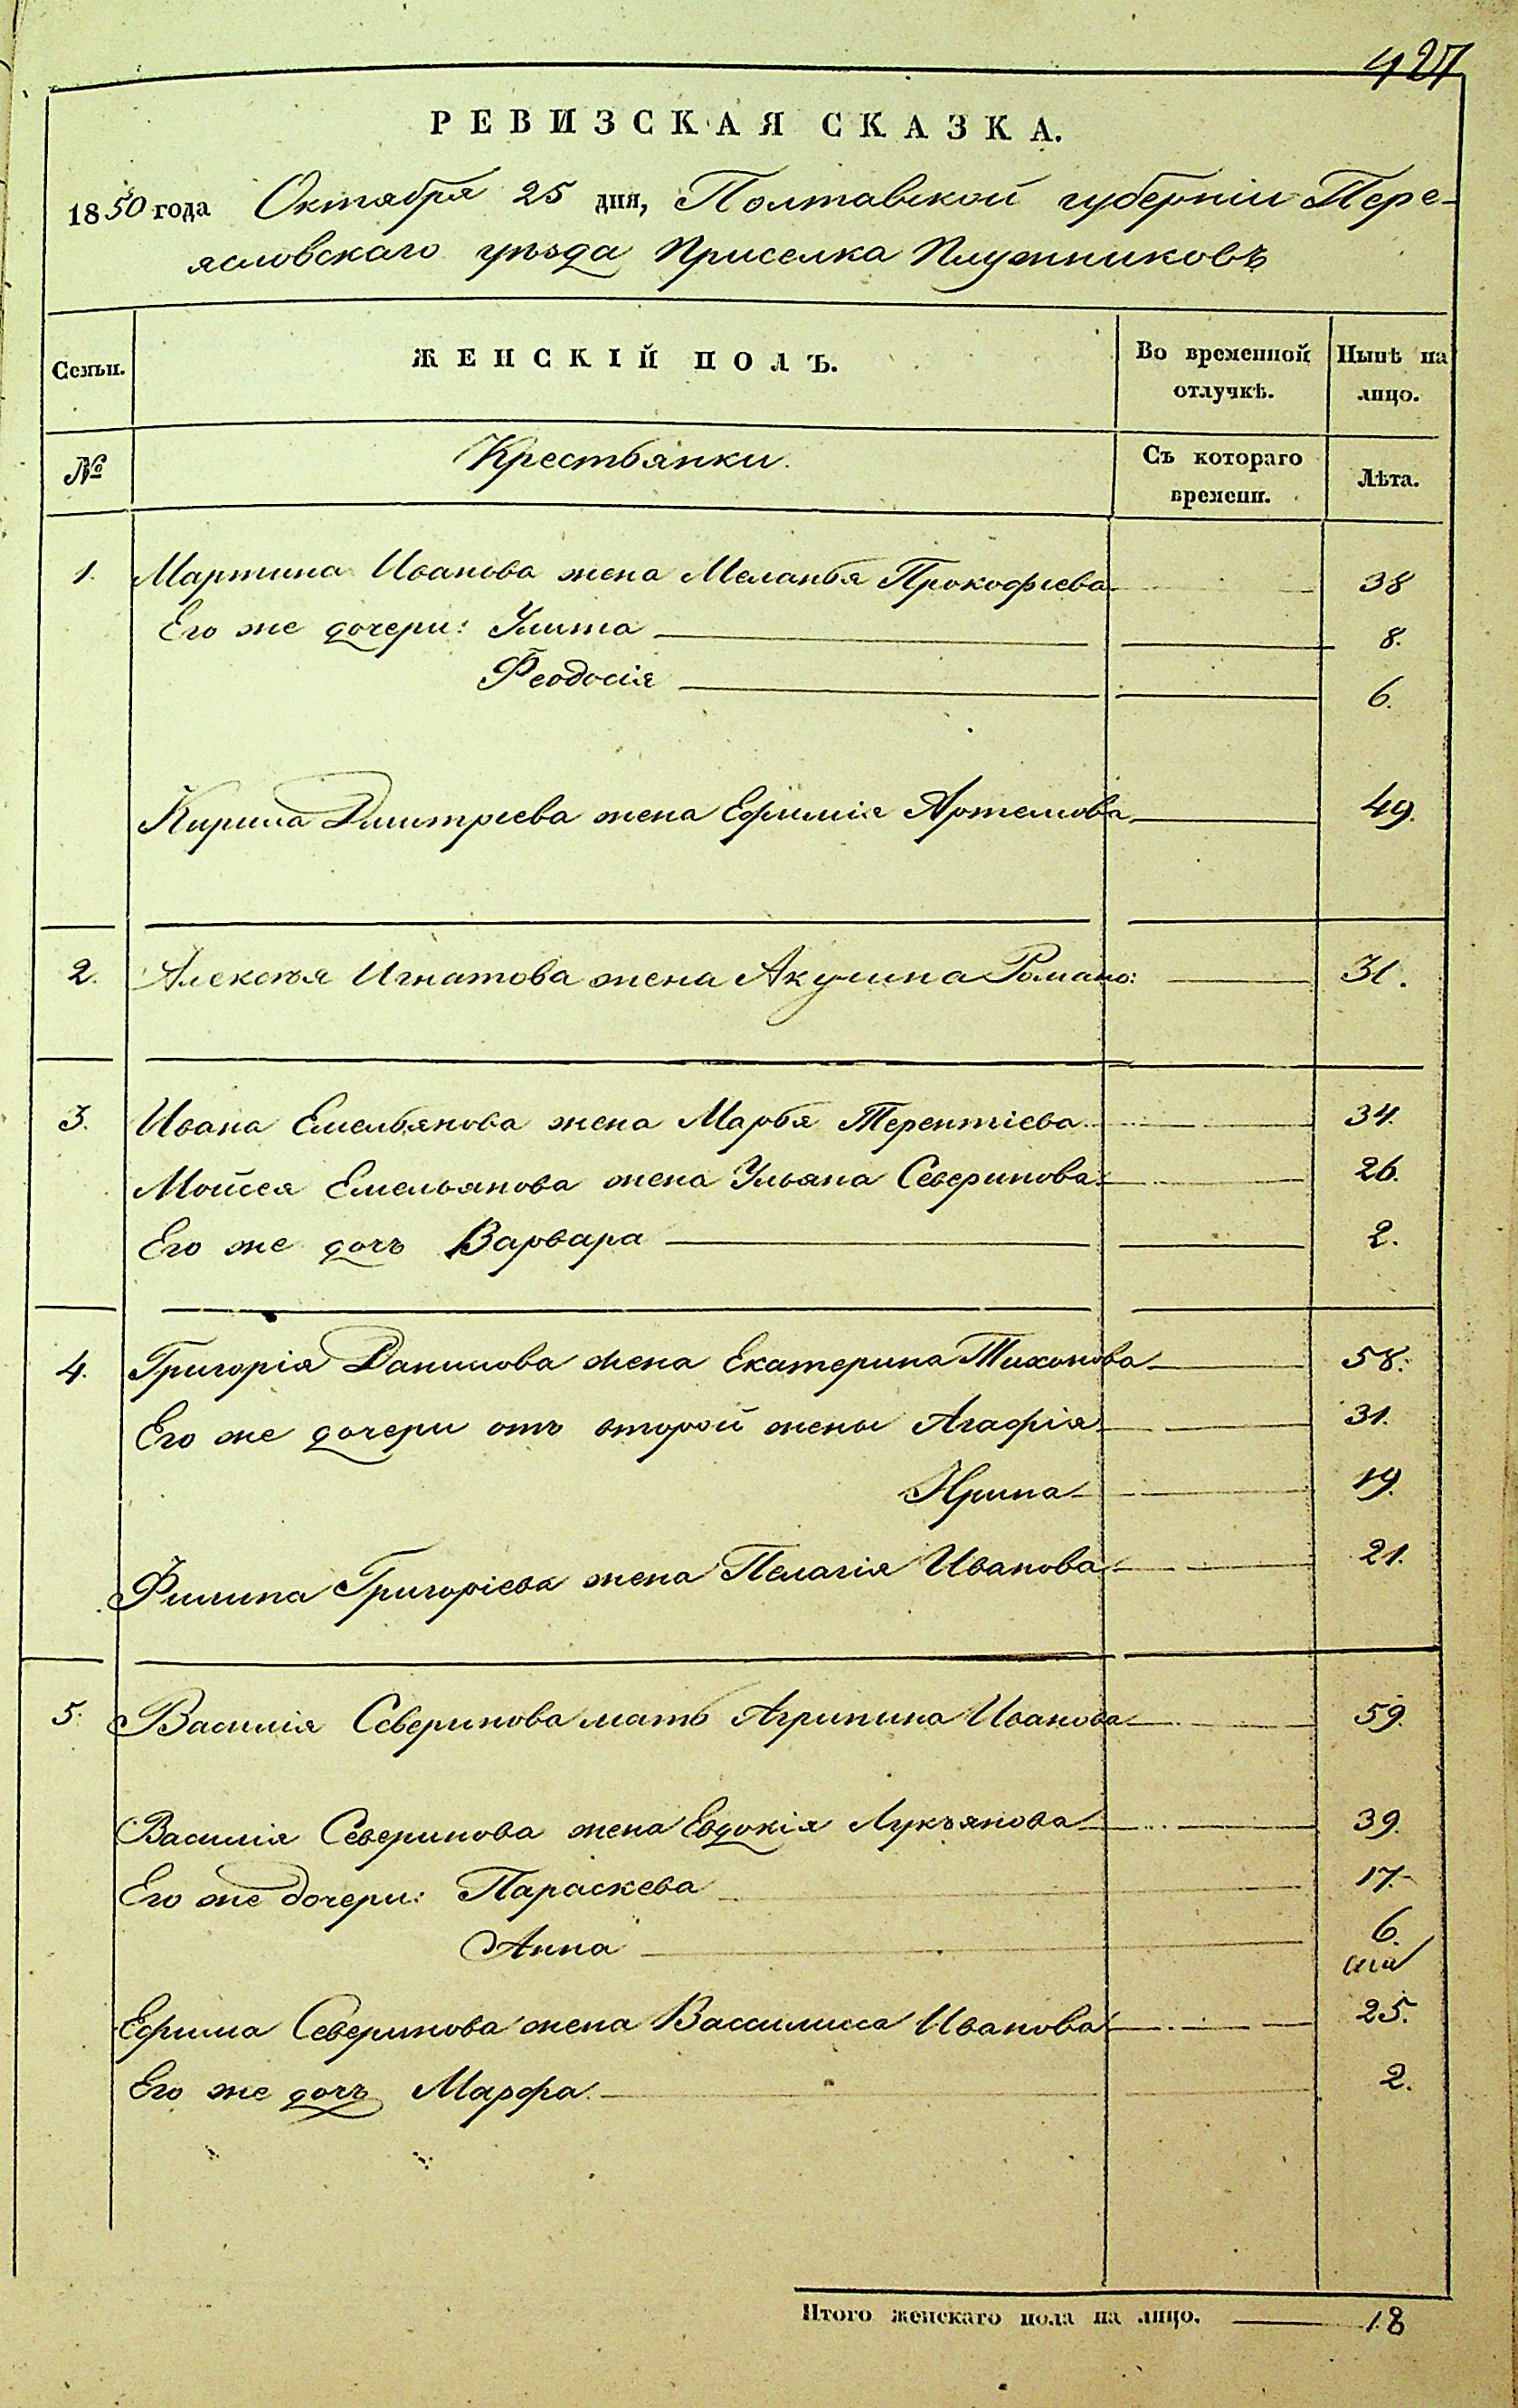 427
РЕВИЗСКАЯ СКАЗКА.
1850 года Октября 25 дня, Полтавской губерніи Пере-
яславскаго уѣзда Приселка Плужниковъ
Семьи. ЖЕНСКІЙ ПОЛЪ. Во временной отлучкѣ. Нынѣ на лицо.
№ Крестьянки. Съ котораго времени. Лѣта.
1. Мартина Иванова жена Меланья Прокофіева 38
Его же дочери: Улита 8.
Феодосія 6.
Кирила Дмитріева жена Ефимія Артемова 49.
2. Алексѣя Игнатова жена Акулина Романо: 31.
3. Ивана Емельянова жена Марья Терентіева 34.
Мойсея Емельянова жена Ульяна Северинова 26.
Его же дочь Варвара 2.
4. Григорія Данилова жена Екатерина Тихонова 58.
Его же дочери отъ второй жены Агафія 31.
Ирина 19.
Филипа Григоріева жена Пелагія Иванова 21.
5. Василія Северинова мать Агрипина Иванова 59.
Василія Северинова жена Евдокія Лукъянова 39.
Его же дочери: Параскева 17.
Анна 6.
Ефима Северинова жена Вассилисса Иванова 25.
Его же дочь Марфа 2.
Итого женскаго пола на лицо. 18